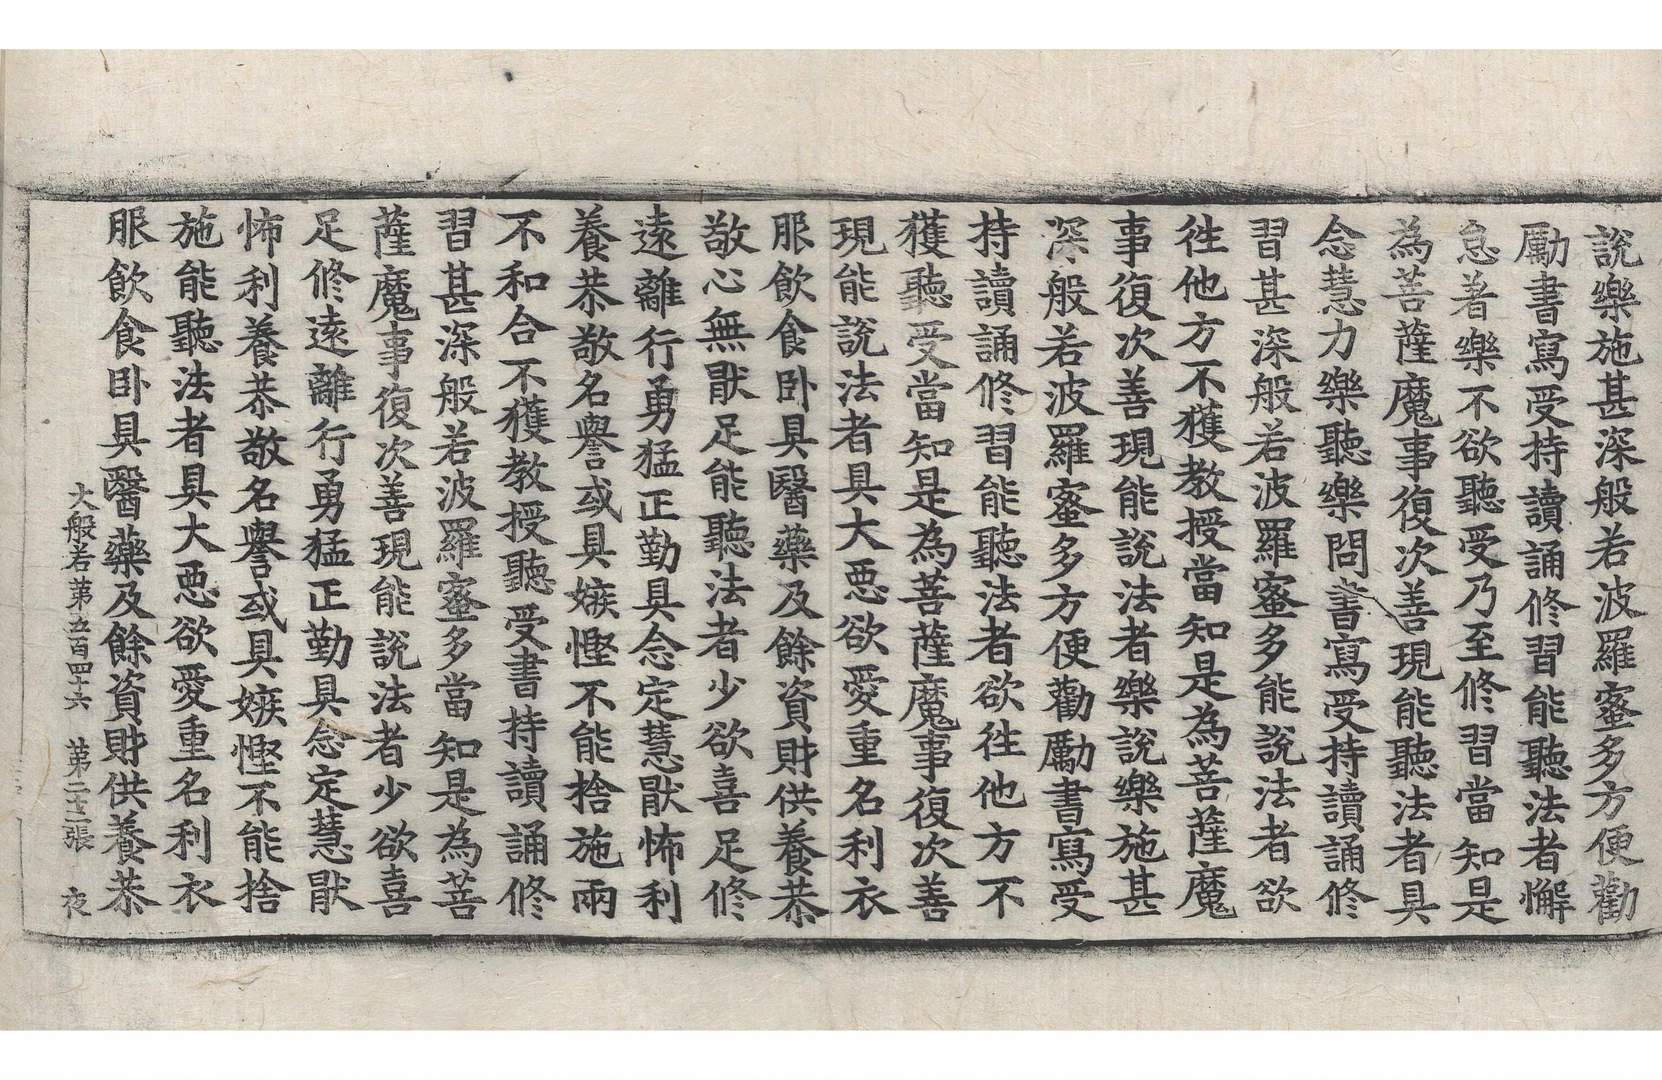 說樂施甚深般若波羅蜜多方便勸
勵書寫受持讀誦修習能聽法者懈
怠著樂不欲聽受乃至修習當知是
為菩薩魔事復次善現能聽法者具
念慧力樂聽樂問書寫受持讀誦修
習甚深般若波羅蜜多能說法者欲
往他方不獲教授當知是為菩薩魔
事復次善現能說法者樂說樂施甚
深般若波羅蜜多方便勸勵書寫受
持讀誦修習能聽法者欲往他方不
獲聽受當知是為菩薩魔事復次善
現能說法者具大惡欲愛重名利衣
服飲食卧具醫藥及餘資財供養恭
敬心無猒足能聽法者少欲喜足修
遠離行勇猛正勤具念定慧猒怖利
養恭敬名譽或具嫉慳不能捨施兩
不和合不獲教授聽受書持讀誦修
習甚深般若波羅蜜多當知是為菩
薩魔事復次善現能說法者少欲喜
足修遠離行勇猛正勤具念定慧猒
怖利養恭敬名譽或具嫉慳不能捨
施能聽法者具大惡欲愛重名利衣
服飲食卧具醫藥及餘資財供養恭
大般若第五百四十六 第二十二張 夜